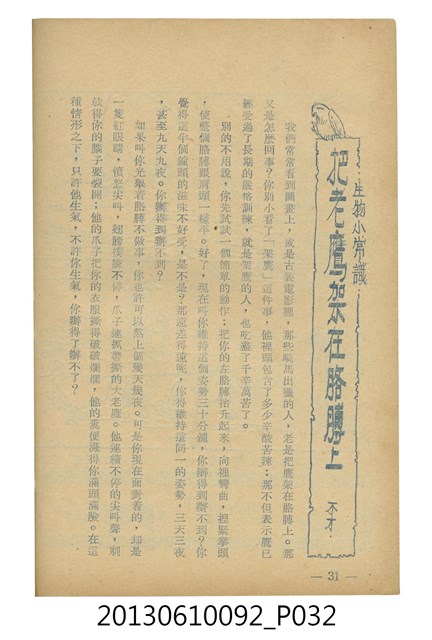 生物小常識：
把老鷹架在胳膊上
不才
我們常常看到圖畫上，或是古裝電影裡，那些騎馬出獵的人，老是把鷹架在胳膊上。那
又是怎麼回事？你別小看了「架鷹」這件事，他裡頭包含了多少辛酸苦辣：那不但表示鷹已
經受過了長期的嚴格訓練，就是架鷹的人，也吃盡了千辛萬苦了。
別的不用說，你先試試一個簡單的動作：把你的左胳膊抬升起來，向裡彎曲，握緊拳頭
，使整個胳膊跟肩頭一樣平。好了，現在叫你維持這個姿勢三十分鐘，你辦得到辦不到？你
覺得這半個鐘頭的滋味不好受，是不是？那還差得遠呢，你得維持這同一的姿勢，三天三夜
，甚至九天九夜。你辦得到辦不到？
如果叫你光舉着胳膊不做事，你也許可以熬上個幾天幾夜。可是你現在面對着的，却是
一隻紅眼睛，憤怒尖叫，翅膀撲騰不停，爪子連抓帶撕的大老鷹。他連續不停的尖叫聲，刺
戟得你的腦子要裂開；他的爪子把你的衣服撕得破破爛爛，他的糞便濺得你滿頭滿臉。在這
種情形之下，只許他生氣，不許你生氣，你辦得了辦不了？
— 31 —
20130610092_P032